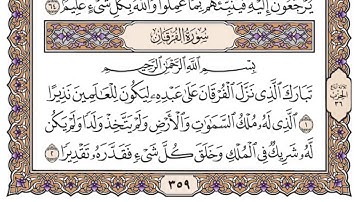 يُرْجَعُونَ إِلَيْهِ فَيُنَبِّئُهُم بِمَا عَمِلُوا۟ وَٱللَّهُ بِكُلِّ شَىْءٍ عَلِيمٌۢ ٦٤
سُورَةُ الْفُرْقَانِ
بِسْمِ ٱللَّهِ ٱلرَّحْمَٰنِ ٱلرَّحِيمِ
تَبَارَكَ ٱلَّذِى نَزَّلَ ٱلْفُرْقَانَ عَلَىٰ عَبْدِهِۦ لِيَكُونَ لِلْعَٰلَمِينَ نَذِيرًا
١ ٱلَّذِى لَهُۥ مُلْكُ ٱلسَّمَٰوَٰتِ وَٱلْأَرْضِ وَلَمْ يَتَّخِذْ وَلَدًا وَلَمْ يَكُن
لَّهُۥ شَرِيكٌ فِى ٱلْمُلْكِ وَخَلَقَ كُلَّ شَىْءٍ فَقَدَّرَهُۥ تَقْدِيرًا ٢
٣٥٩